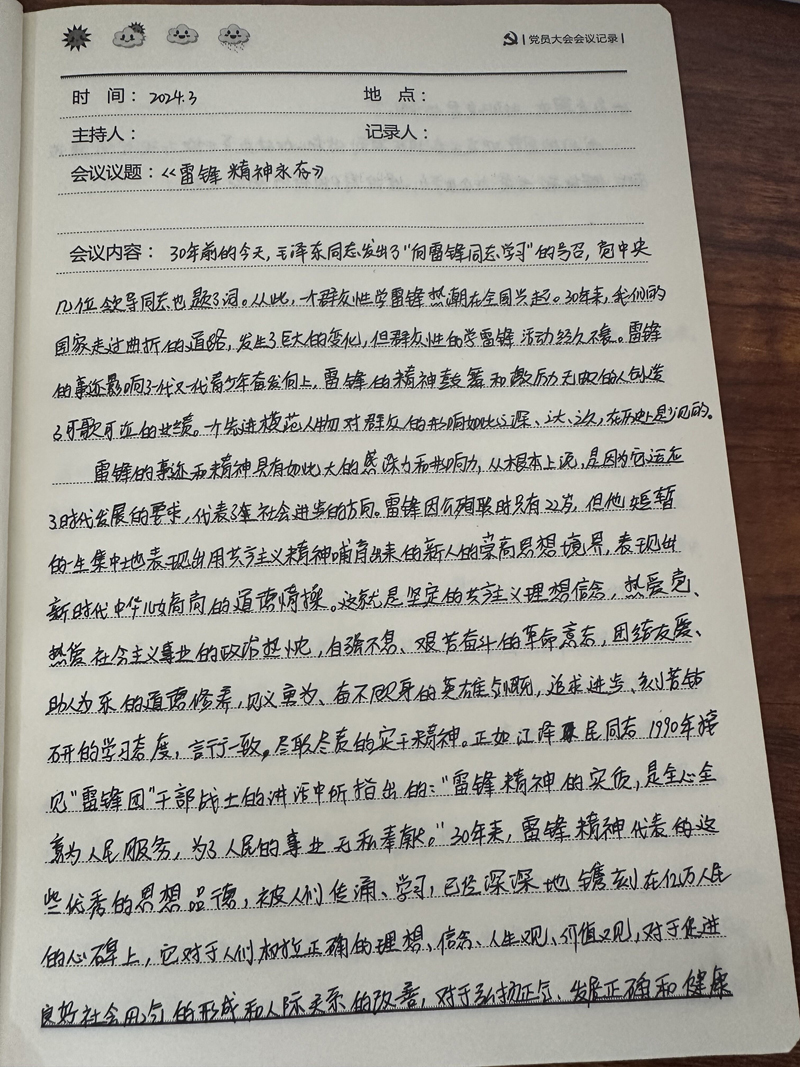 党员大会会议记录
时 间：2024.3 地 点：
主持人： 记录人：
会议议题：《雷锋精神永存》
会议内容：30年前的今天，毛泽东同志发出了"向雷锋同志学习"的号召，党中央
几位领导同志也题了词。从此，一个群众性学雷锋热潮在全国兴起。30年来，我们的
国家走过曲折的道路，发生了巨大的变化，但群众性的学雷锋活动经久不衰。雷锋
的事迹影响了一代又一代青少年奋发向上，雷锋的精神鼓舞和激励无数的人创造
了可歌可泣的业绩。一个先进模范人物对群众的影响如此之深、之大、之久，在历史上是少见的。
雷锋的事迹和精神具有如此大的感染力和影响力，从根本上说，是因为它适应
了时代发展的要求，代表了社会进步的方向。雷锋因公殉职时只有22岁，但他短暂
的一生集中地表现出用共产主义精神哺育出来的新人的崇高思想境界，表现出
新时代中华儿女高尚的道德情操。这就是坚定的共产主义理想信念，热爱党、
热爱社会主义事业的政治热忱，自强不息、艰苦奋斗的革命意志，团结友爱、
助人为乐的道德修养，见义勇为、奋不顾身的英雄气概，追求进步、刻苦钻
研的学习态度，言行一致，尽职尽责的实干精神。正如江泽民同志1990年接
见"雷锋团"干部战士的讲话中所指出的："雷锋精神的实质，是全心全
意为人民服务，为了人民的事业无私奉献。"30年来，雷锋精神代表的这
些优秀的思想品德，被人们传诵、学习，已经深深地镌刻在亿万人民
的心碑上，它对于人们树立正确的理想、信念、人生观、价值观，对于促进
良好社会风气的形成和人际关系的改善，对于弘扬正气、发展正确和健康